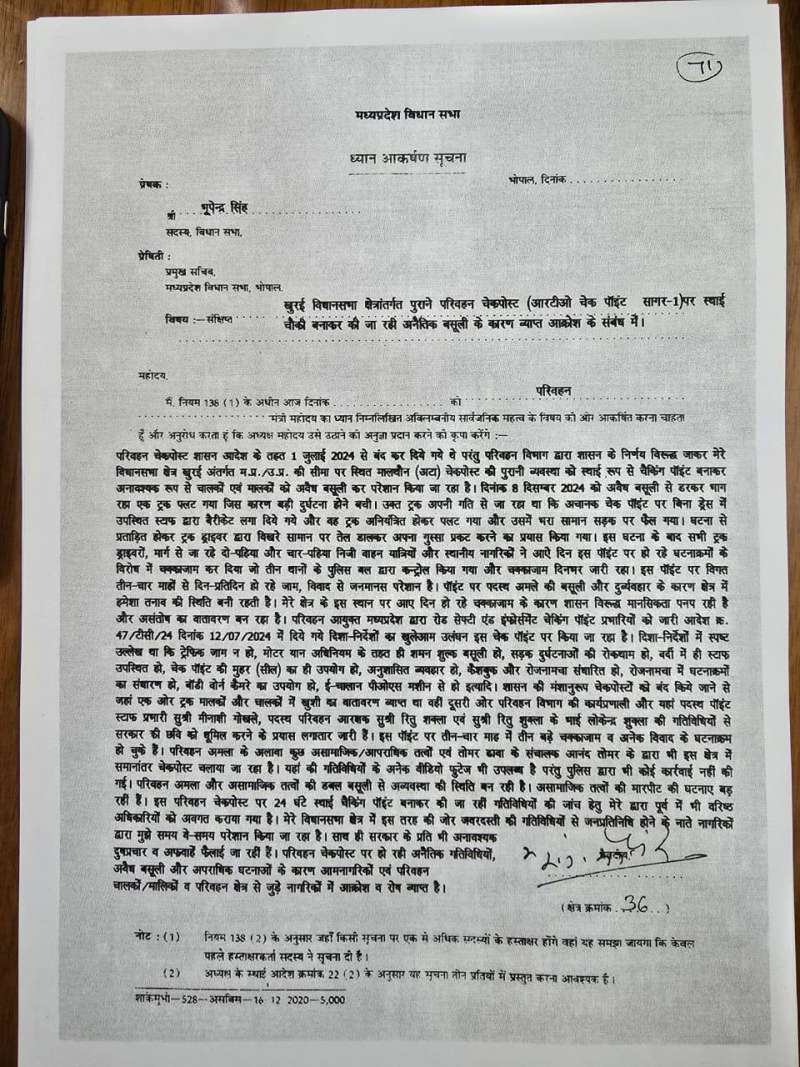 71
मध्यप्रदेश विधान सभा
ध्यान आकर्षण सूचना
प्रेषक :
भोपाल, दिनांक . . . . . . . . . . . . . . . .
श्री भूपेन्द्र सिंह
सदस्य, विधान सभा,
प्रेषिती :
प्रमुख सचिव,
मध्यप्रदेश विधान सभा, भोपाल.
खुरई विधानसभा क्षेत्रांतर्गत पुराने परिवहन चेकपोस्ट (आरटीओ चेक पॉइंट सागर-1)पर स्थाई
विषय :—संक्षिप्त चौकी बनाकर की जा रही अनैतिक बसूली के कारण व्याप्त आक्रोश के संबंध में।
महोदय,
मैं, नियम 138 (1) के अधीन आज दिनांक . . . . . . . . . . . . . . . को परिवहन
मंत्री महोदय का ध्यान निम्नलिखित अविलम्बनीय सार्वजनिक महत्व के विषय की ओर आकर्षित करना चाहता
हूँ और अनुरोध करता हूं कि अध्यक्ष महोदय उसे उठाने की अनुज्ञा प्रदान करने की कृपा करेंगे :—
परिवहन चेकपोस्ट शासन आदेश के तहत 1 जुलाई 2024 से बंद कर दिये गये थे परंतु परिवहन विभाग द्वारा शासन के निर्णय विरूद्ध जाकर मेरे
विधानसभा क्षेत्र खुरई अंतर्गत म.प्र./उ.प्र. की सीमा पर स्थित मालथौन (अटा) चेकपोस्ट की पुरानी व्यवस्था को स्थाई रूप से चैकिंग पॉइंट बनाकर
अनावश्यक रूप से चालकों एवं मालकों को अवैध बसूली कर परेशान किया जा रहा है। दिनांक 8 दिसम्बर 2024 को अवैध बसूली से डरकर भाग
रहा एक ट्रक पलट गया जिस कारण बड़ी दुर्घटना होने बची। उक्त ट्रक अपनी गति से जा रहा था कि अचानक चेक पॉइंट पर बिना ड्रेस में
उपस्थित स्टाफ द्वारा बैरीकेट लगा दिये गये और वह ट्रक अनियंत्रित होकर पलट गया और उसमें भरा सामान सड़क पर फैल गया। घटना से
प्रताड़ित होकर ट्रक ड्राइवर द्वारा बिखरे सामान पर तेल डालकर अपना गुस्सा प्रकट करने का प्रयास किया गया। इस घटना के बाद सभी ट्रक
ड्राइवरों, मार्ग से जा रहे दो-पहिया और चार-पहिया निजी वाहन यात्रियों और स्थानीय नागरिकों ने आऐ दिन इस पॉइंट पर हो रहे घटनाक्रमों के
विरोध में चक्काजाम कर दिया जो तीन थानों के पुलिस बल द्वारा कन्ट्रोल किया गया और चक्काजाम दिनभर जारी रहा। इस पॉइंट पर विगत
तीन-चार माहों से दिन-प्रतिदिन हो रहे जाम, विवाद से जनमानस परेशान है। पॉइंट पर पदस्थ अमले की बसूली और दुर्व्यवहार के कारण क्षेत्र में
हमेशा तनाव की स्थिति बनी रहती है। मेरे क्षेत्र के इस स्थान पर आए दिन हो रहे चक्काजाम के कारण शासन विरूद्ध मानसिकता पनप रही है
और असंतोष का वातावरण बन रहा है। परिवहन आयुक्त मध्यप्रदेश द्वारा रोड सेफ्टी एंड इंफोर्समेंट चेकिंग पॉइंट प्रभारियों को जारी आदेश क्र.
47/टीसी/24 दिनांक 12/07/2024 में दिये गये दिशा-निर्देशों का खुलेआम उलंघन इस चेक पॉइंट पर किया जा रहा है। दिशा-निर्देशों में स्पष्ट
उल्लेख था कि ट्रेफिक जाम न हो, मोटर यान अधिनियम के तहत ही शमन शुल्क बसूली हो, सड़क दुर्घटनाओं की रोकथाम हो, बर्दी में ही स्टाफ
उपस्थित हो, चेक पॉइंट की मुहर (सील) का ही उपयोग हो, अनुशासित व्यवहार हो, कैशबुक और रोजनामचा संधारित हो, रोजनामचा में घटनाक्रमों
का संधारण हो, बॉडी वोर्न कैमरे का उपयोग हो, ई-चालान पीओएस मशीन से हो इत्यादि। शासन की मंशानुरूप चेकपोस्टों को बंद किये जाने से
जहां एक ओर ट्रक मालकों और चालकों में खुशी का वातावरण व्याप्त था वहीं दूसरी ओर परिवहन विभाग की कार्यप्रणाली और यहां पदस्थ पॉइंट
स्टाफ प्रभारी सुश्री मीनाक्षी गोखले, पदस्थ परिवहन आरक्षक सुश्री रितु शुक्ला एवं सुश्री रितु शुक्ला के भाई लोकेन्द्र शुक्ला की गतिविधियों से
सरकार की छवि को धूमिल करने के प्रयास लगातार जारी हैं। इस पॉइंट पर तीन-चार माह में तीन बड़े चक्काजाम व अनेक विवाद के घटनाक्रम
हो चुके हैं। परिवहन अमला के अलावा कुछ असामाजिक/आपराधिक तत्वों एवं तोमर ढाबा के संचालक आनंद तोमर के द्वारा भी इस क्षेत्र में
समानांतर चेकपोस्ट चलाया जा रहा है। यहां की गतिविधियों के अनेक वीडियो फुटेज भी उपलब्ध है परंतु पुलिस द्वारा भी कोई कार्रवाई नहीं की
गई। परिवहन अमला और असामाजिक तत्वों की डबल बसूली से अव्यवस्था की स्थिति बन रही है। असामाजिक तत्वों की मारपीट की घटनाए बड़
रहीं हैं। इस परिवहन चेकपोस्ट पर 24 घंटे स्थाई चैकिंग पॉइंट बनाकर की जा रहीं गतिविधियों की जांच हेतु मेरे द्वारा पूर्व में भी वरिष्ठ
अधिकारियों को अवगत कराया गया है। मेरे विधानसभा क्षेत्र में इस तरह की जोर जवरदस्ती की गतिविधियों से जनप्रतिनिधि होने के नाते नागरिकों
द्वारा मुझे समय बे-समय परेशान किया जा रहा है। साथ ही सरकार के प्रति भी अनावश्यक
दुषप्रचार व अफवाहें फैलाई जा रहीं हैं। परिवहन चेकपोस्ट पर हो रही अनैतिक गतिविधियों,
अवैध बसूली और अपराधिक घटनाओं के कारण आमनागरिकों एवं परिवहन
चालाकों/मालिकों व परिवहन क्षेत्र से जुड़े नागरिकों में आक्रोश व रोष व्याप्त है।
(क्षेत्र क्रमांक 36 . .)
नोट : (1) नियम 138 (2) के अनुसार जहाँ किसी सूचना पर एक से अधिक सदस्यों के हस्ताक्षर होंगे वहां यह समझा जायगा कि केवल
पहले हस्ताक्षरकर्ता सदस्य ने सूचना दी है।
(2) अध्यक्ष के स्थाई आदेश क्रमांक 22 (2) के अनुसार यह सूचना तीन प्रतियों में प्रस्तुत करना आवश्यक है।
शाकेमुभो—528—असविस—16 12 2020—5,000.